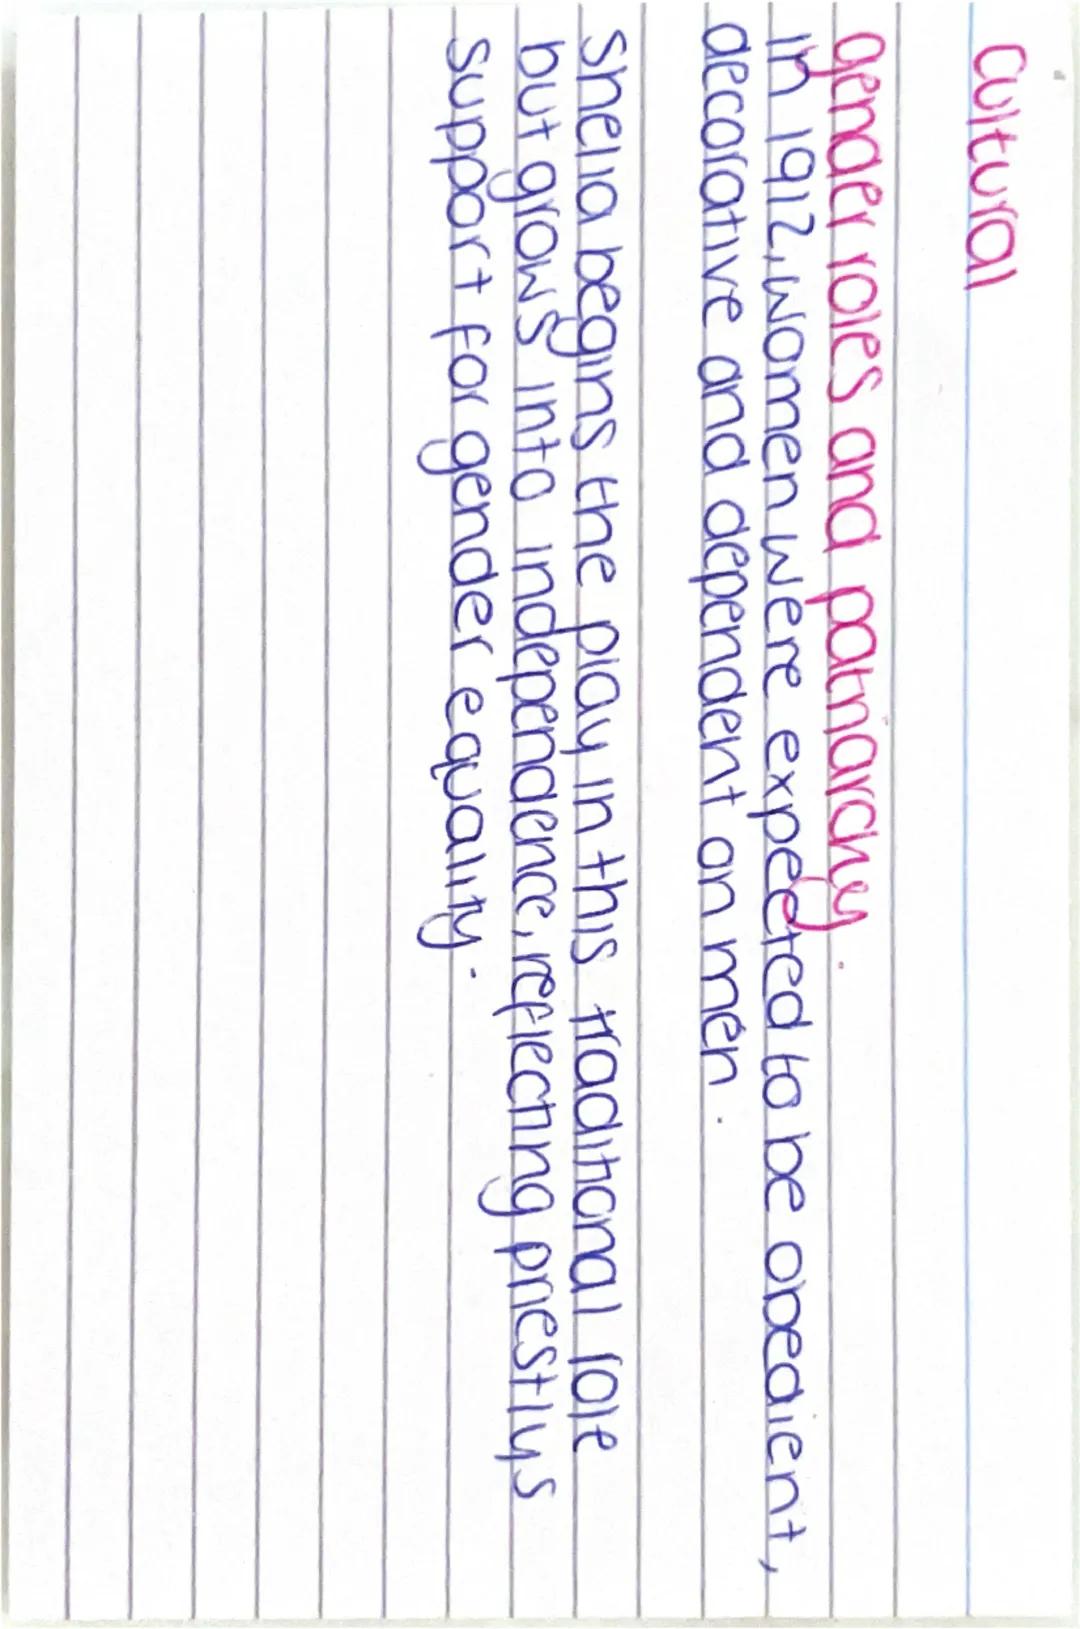 Cultural
gender roles and patriarchy.
in 1912, women were expected to be obedient,
decorative and dependent on men.
Shelia begins the play in this traditional role
but grows into independence, reflecting priestlys
support for gender equality.